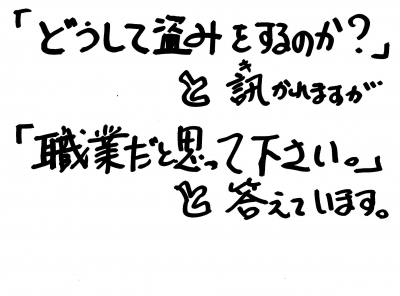 「どうして盗みをするのか?」
と訊かれますが
「職業だと思って下さい。」
と答えています。